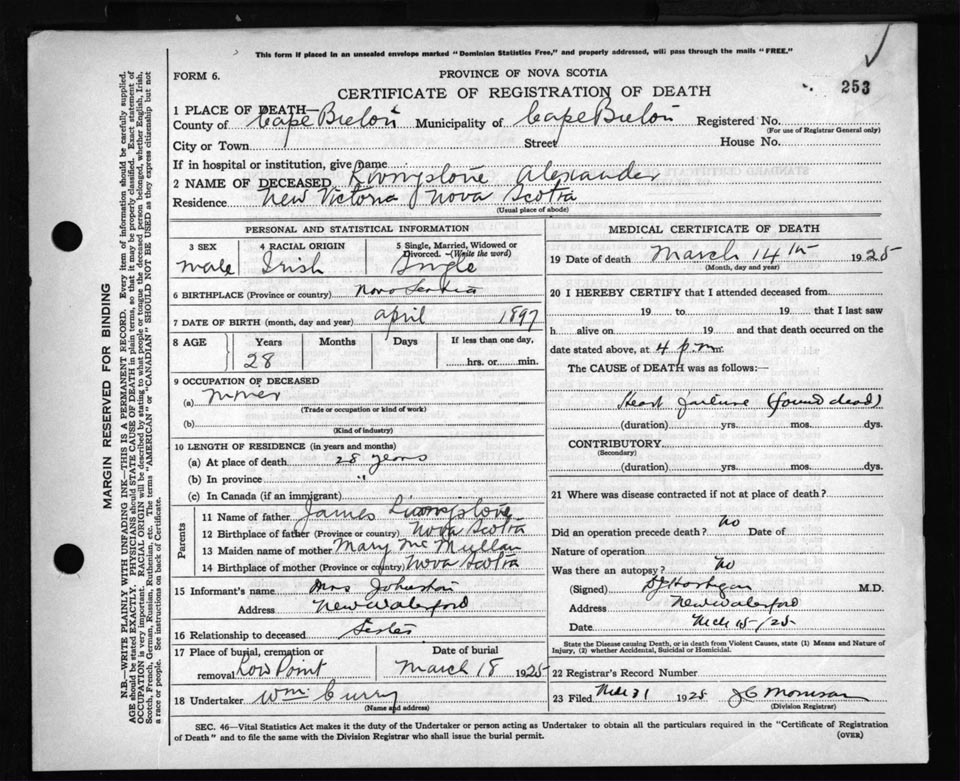 This form if placed in an unsealed envelope marked "Dominion Statistics Free," and properly addressed, will pass through the mails "FREE."
FORM 6.
PROVINCE OF NOVA SCOTIA
CERTIFICATE OF REGISTRATION OF DEATH
253
1 PLACE OF DEATH—
County of Cape Breton Municipality of Cape Breton Registered No.
(For use of Registrar General only)
City or Town Street House No.
If in hospital or institution, give name
2 NAME OF DECEASED Livingstone Alexander
Residence New Victoria Nova Scotia
(Usual place of abode)
PERSONAL AND STATISTICAL INFORMATION
3 SEX
Male
4 RACIAL ORIGIN
Irish
5 Single, Married, Widowed or Divorced. —(Write the word)
Single
6 BIRTHPLACE (Province or country) Nova Scotia
7 DATE OF BIRTH (month, day and year) April 1897
8 AGE Years Months Days If less than one day,
28 hrs. or min.
9 OCCUPATION OF DECEASED
(a) Miner
(Trade or occupation or kind of work)
(b)
(Kind of industry)
10 LENGTH OF RESIDENCE (in years and months)
(a) At place of death 28 years
(b) In province "
(c) In Canada (if an immigrant)
Parents
11 Name of father James Livingstone
12 Birthplace of father (Province or country) Nova Scotia
13 Maiden name of mother Mary McMullan
14 Birthplace of mother (Province or country) Nova Scotia
15 Informant's name Mrs Johnston
Address New Waterford
16 Relationship to deceased Sister
17 Place of burial, cremation or removal Low Point
Date of burial
March 18 1925
18 Undertaker Wm Curry
(Name and address)
MEDICAL CERTIFICATE OF DEATH
19 Date of death March 14th 1925
(Month, day and year)
20 I HEREBY CERTIFY that I attended deceased from
19 to 19 that I last saw
h alive on 19 and that death occurred on the
date stated above, at 4 p.m.
The CAUSE of DEATH was as follows:—
Heart failure (found dead)
(duration) yrs. mos. dys.
CONTRIBUTORY
(Secondary)
(duration) yrs. mos. dys.
21 Where was disease contracted if not at place of death?
Did an operation precede death? No Date of
Nature of operation
Was there an autopsy? No
(Signed) M.D.
Address New Waterford
Date Mch 15/25
State the Disease causing Death, or in death from Violent Causes, state (1) Means and Nature of Injury, (2) whether Accidental, Suicidal or Homicidal.
22 Registrar's Record Number
23 Filed Mch 31 1925 J C Morrison
(Division Registrar)
SEC. 46—Vital Statistics Act makes it the duty of the Undertaker or person acting as Undertaker to obtain all the particulars required in the "Certificate of Registration
of Death" and to file the same with the Division Registrar who shall issue the burial permit.
(OVER)
MARGIN RESERVED FOR BINDING
N.B.—WRITE PLAINLY WITH UNFADING INK—THIS IS A PERMANENT RECORD. Every item of information should be carefully supplied.
AGE should be stated EXACTLY. PHYSICIANS should STATE CAUSE OF DEATH in plain terms, so that it may be properly classified. Exact statement of
OCCUPATION is very important. RACIAL ORIGIN will be described by stating to what people or tongue the deceased person belonged, whether English, Irish,
Scotch, French, German, Russian, Ruthenian, etc. The terms "AMERICAN" or "CANADIAN" SHOULD NOT BE USED as they express citizenship but not
a race or people. See instructions on back of Certificate.